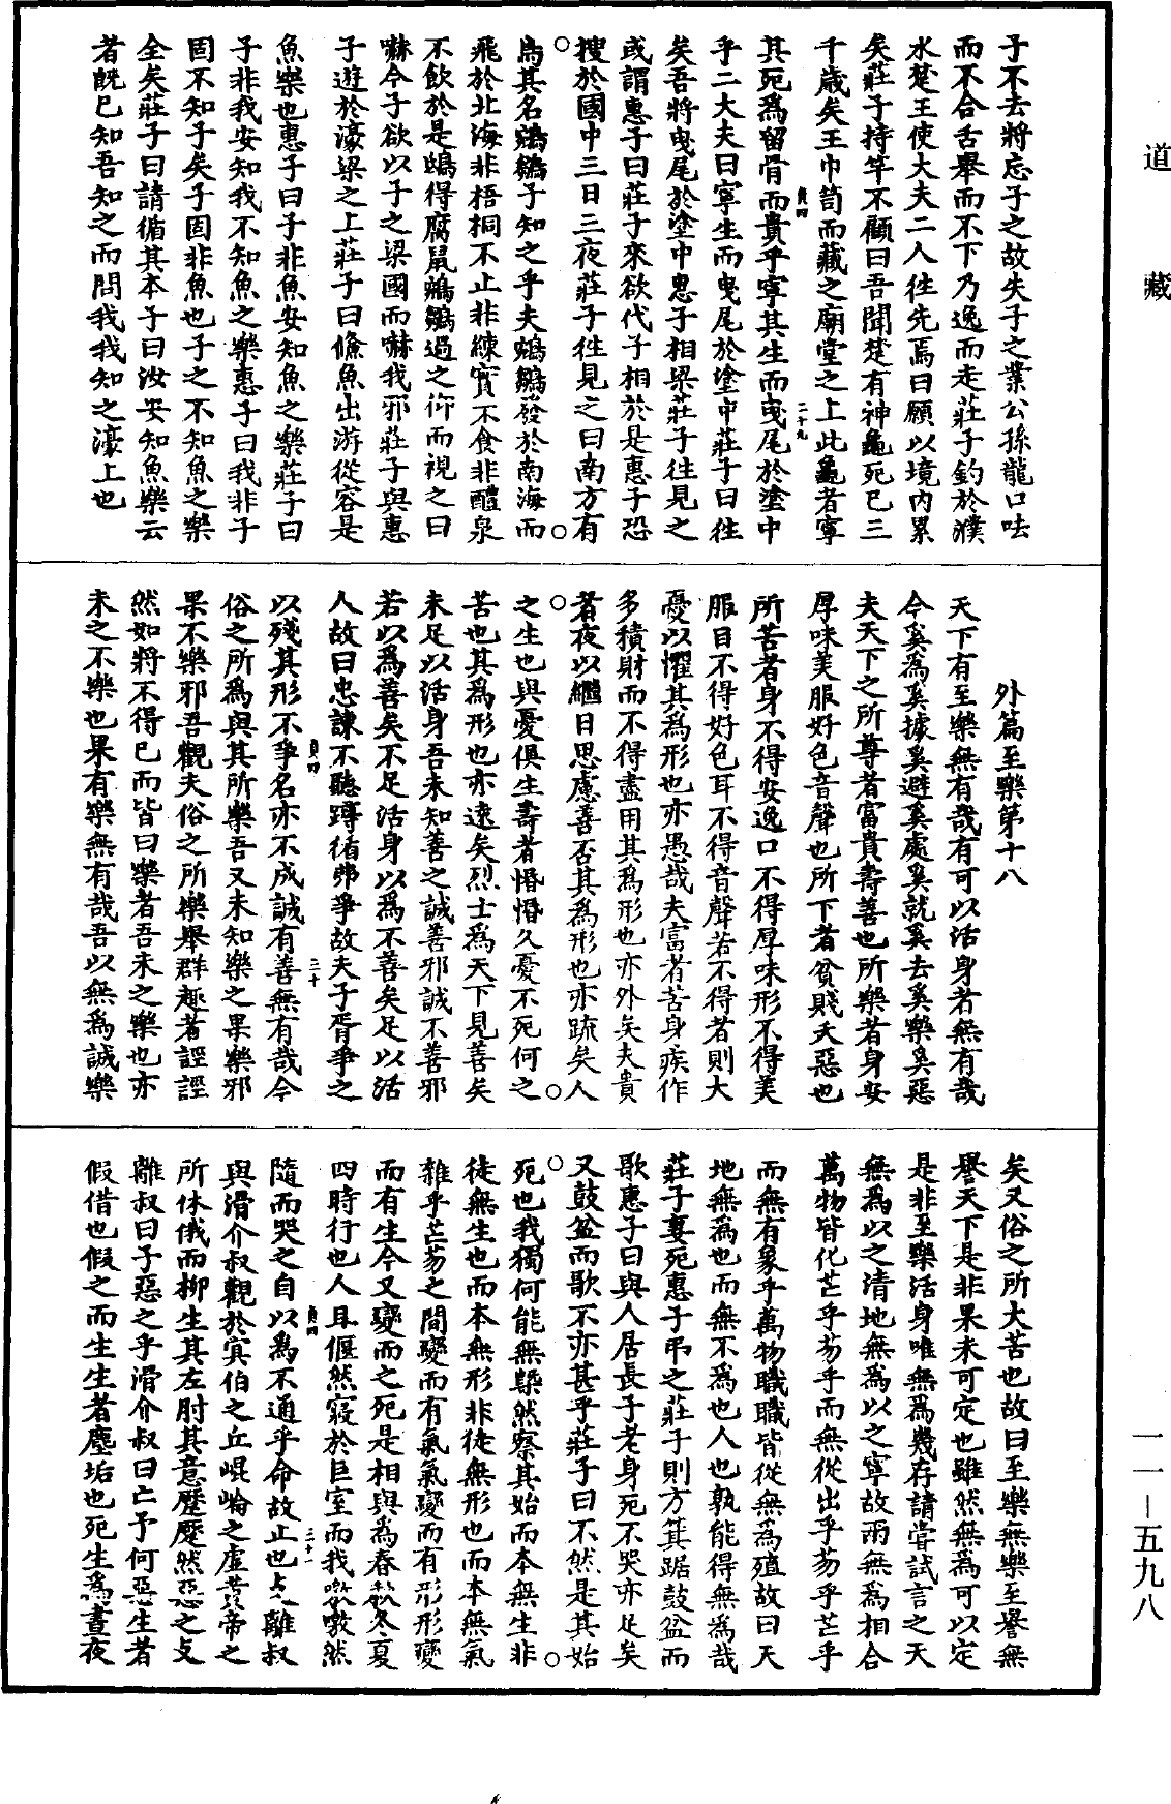 道藏
子不去將忘子之故失子之業公孫龍口呿
而不合舌舉而不下乃逸而走莊子釣於濮
水楚王使大夫二人往先焉曰願以境內累
矣莊子持竿不顧曰吾聞楚有神龜死已三
千歲矣王巾笥而藏之廟堂之上此龜者寧
貞四
二十九
其死為留骨而貴乎寧其生而曳尾於塗中
乎二大夫曰寧生而曳尾於塗中莊子曰往
矣吾將曳尾於塗中惠子相梁莊子往見之
或謂惠子曰莊子來欲代子相於是惠子恐
搜於國中三日三夜莊子往見之曰南方有
鳥其名鵷鶵子知之乎夫鵷鶵發於南海而
飛於北海非梧桐不止非練實不食非醴泉
不飲於是鴟得腐鼠鵷鶵過之仰而視之曰
嚇今子欲以子之梁國而嚇我邪莊子與惠
子遊於濠梁之上莊子曰鯈魚出游從容是
魚樂也惠子曰子非魚安知魚之樂莊子曰
子非我安知我不知魚之樂惠子曰我非子
固不知子矣子固非魚也子之不知魚之樂
全矣莊子曰請循其本子曰汝安知魚樂云
者既已知吾知之而問我我知之濠上也
外篇至樂第十八
天下有至樂無有哉有可以活身者無有哉
今奚為奚據奚避奚處奚就奚去奚樂奚惡
夫天下之所尊者富貴壽善也所樂者身安
厚味美服好色音聲也所下者貧賤夭惡也
所苦者身不得安逸口不得厚味形不得美
服目不得好色耳不得音聲若不得者則大
憂以懼其為形也亦愚哉夫富者苦身疾作
多積財而不得盡用其為形也亦外矣夫貴
者夜以繼日思慮善否其為形也亦疏矣人
之生也與憂俱生壽者惛惛久憂不死何之
苦也其為形也亦遠矣烈士為天下見善矣
未足以活身吾未知善之誠善邪誠不善邪
若以為善矣不足活身以為不善矣足以活
人故曰忠諫不聽蹲循弗爭故夫子胥爭之
貞四
三十
以殘其形不爭名亦不成誠有善無有哉今
俗之所為與其所樂吾又未知樂之果樂邪
果不樂邪吾觀夫俗之所樂舉群趣者誙誙
然如將不得已而皆曰樂者吾未之樂也亦
未之不樂也果有樂無有哉吾以無為誠樂
矣又俗之所大苦也故曰至樂無樂至譽無
譽天下是非果未可定也雖然無為可以定
是非至樂活身唯無為幾存請嘗試言之天
無為以之清地無為以之寧故兩無為相合
萬物皆化芒乎芴乎而無從出乎芴乎芒乎
而無有象乎萬物職職皆從無為殖故曰天
地無為也而無不為也人也孰能得無為哉
莊子妻死惠子弔之莊子則方箕踞鼓盆而
歌惠子曰與人居長子老身死不哭亦足矣
又鼓盆而歌不亦甚乎莊子曰不然是其始
死也我獨何能無槩然察其始而本無生非
徒無生也而本無形非徒無形也而本無氣
雜乎芒芴之間變而有氣氣變而有形形變
而有生今又變而之死是相與為春秋冬夏
四時行也人且偃然寢於巨室而我噭噭然
貞四
三十一
隨而哭之自以為不通乎命故止也支離叔
與滑介叔觀於冥伯之丘崐崙之虛黃帝之
所休俄而柳生其左肘其意蹷蹷然惡之支
離叔曰子惡之乎滑介叔曰亡予何惡生者
假借也假之而生生者塵垢也死生為晝夜
一一—五九八